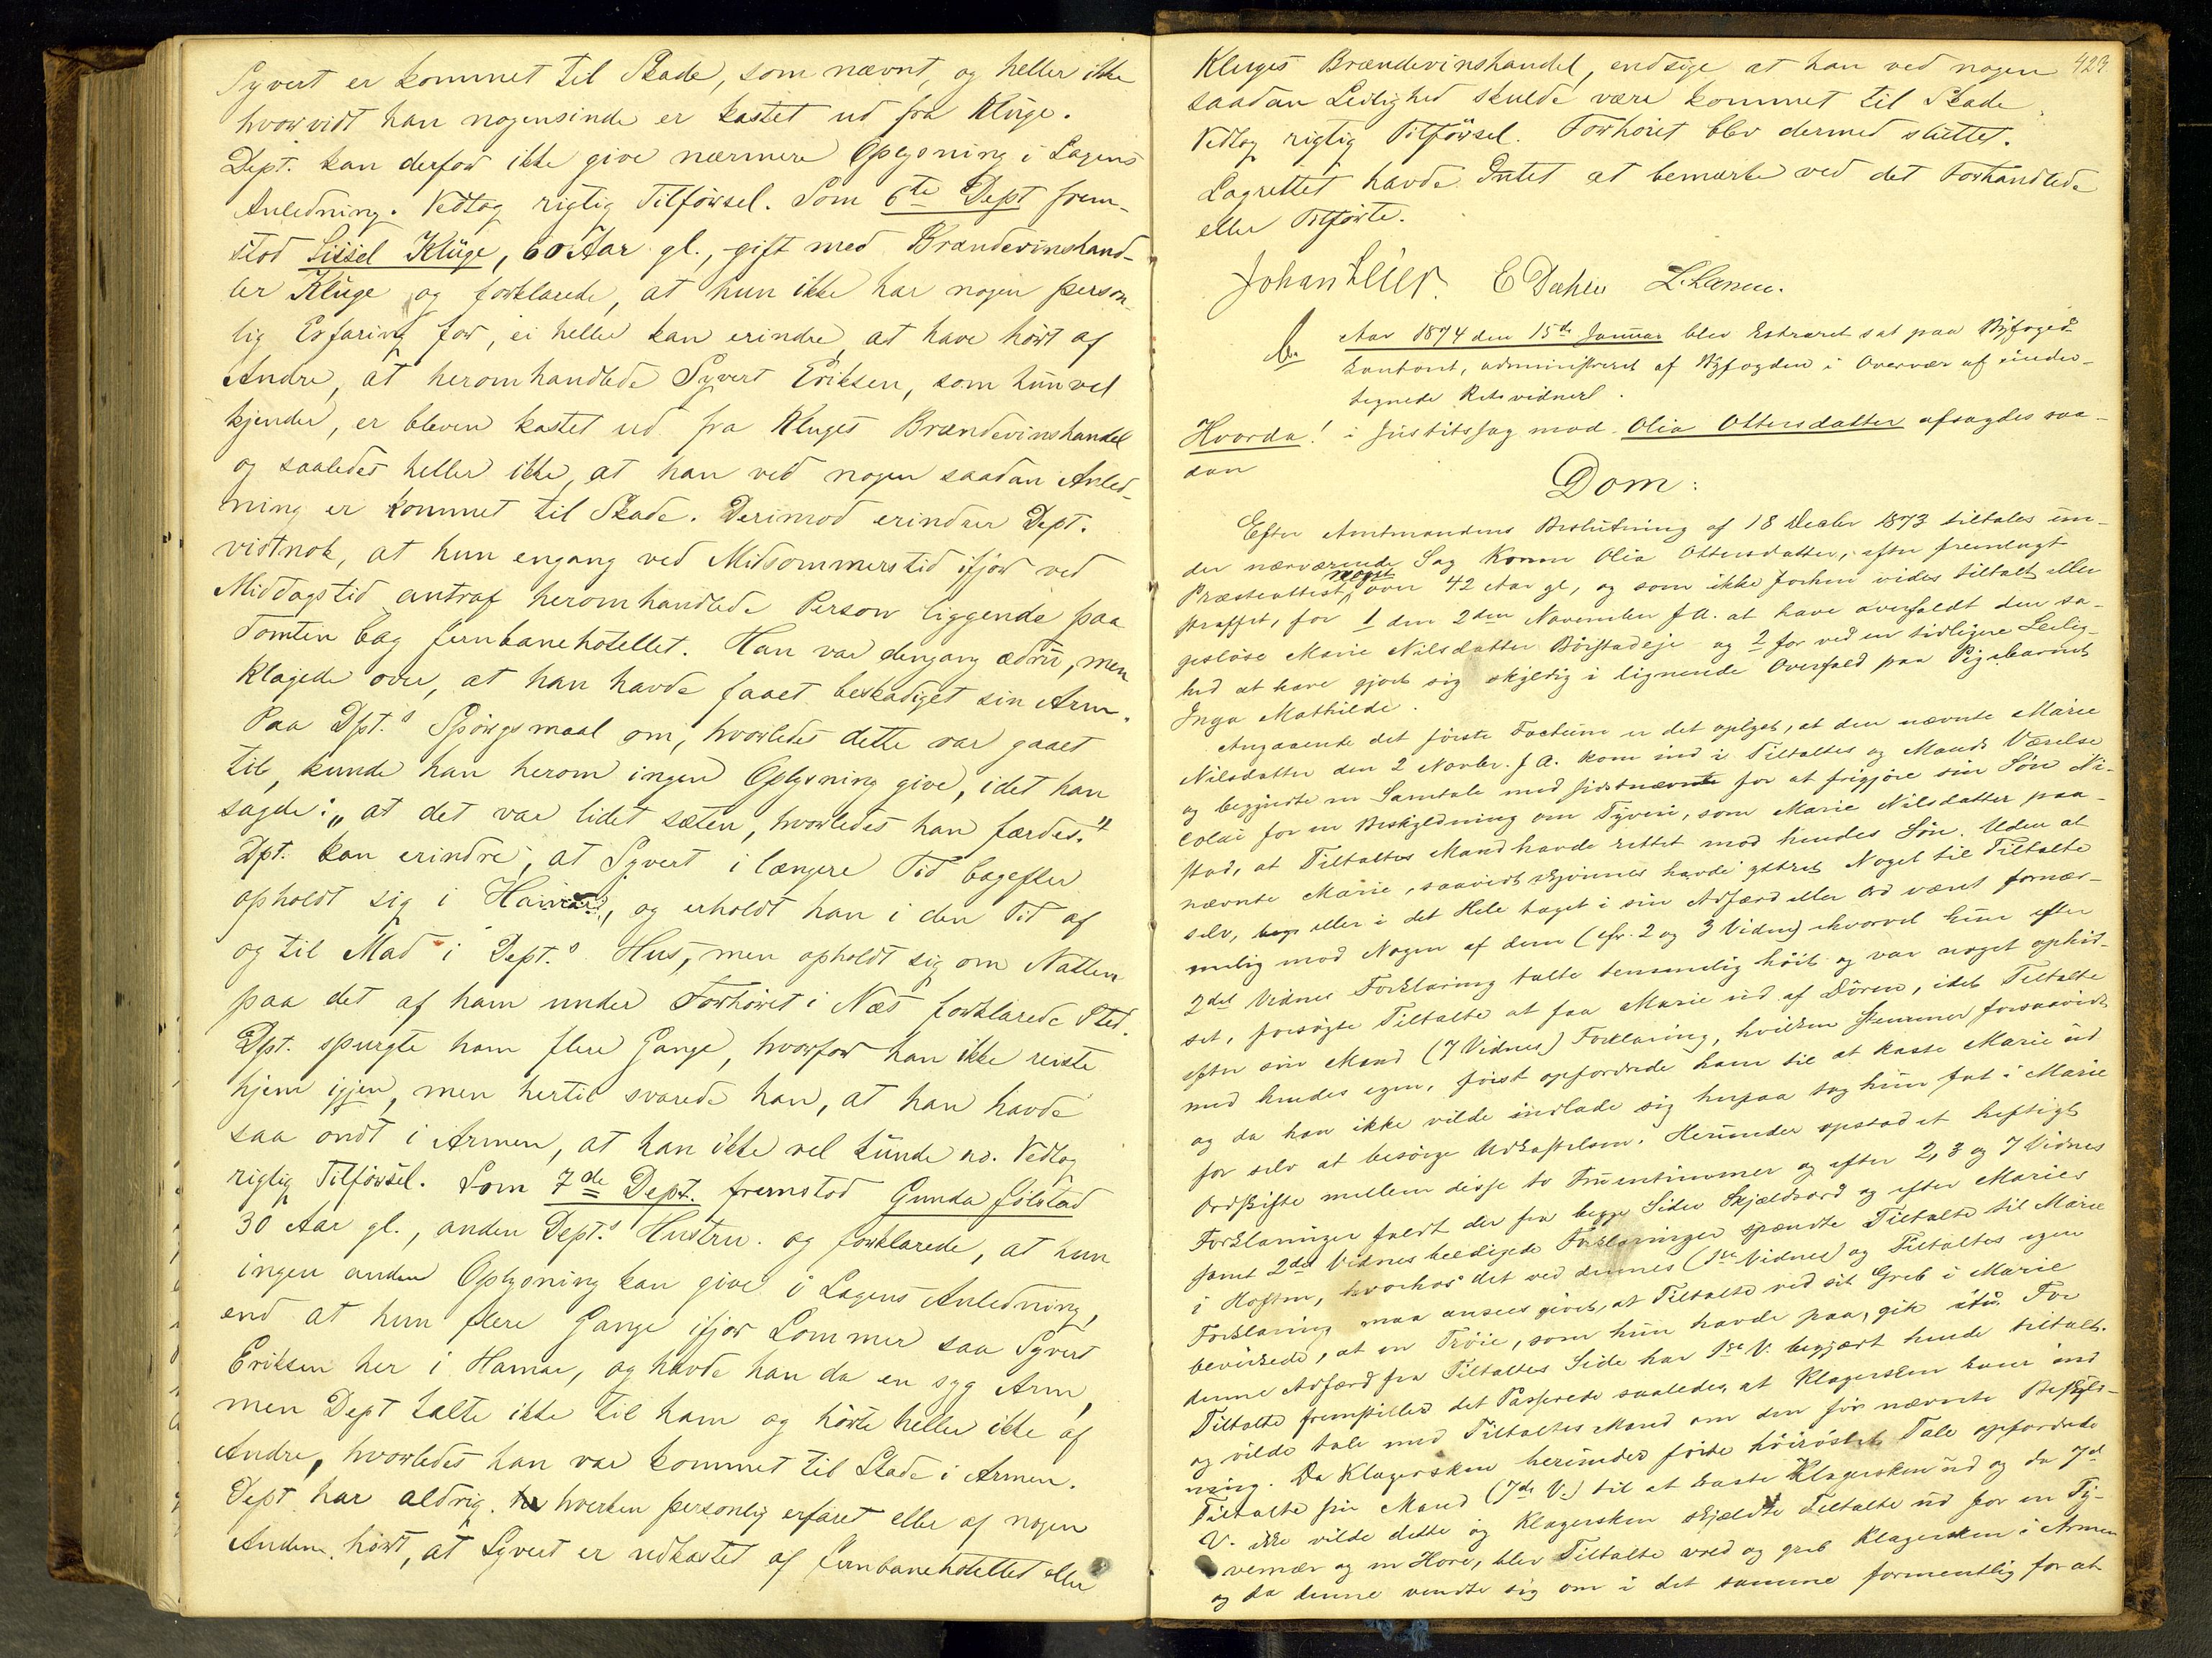 Syvert er kommet til Skade, som nævnt, og heller ikke
hvorvidt han nogensinde er kastet ud fra Kluge.
Dept. kan derfor ikke give nærmere Oplysning i Sagens
Anledning. Vedtog rigtig Tilførsel. Som 6te Dept frem-
stod Sissel Kluge, 60 Aar gl., gift med Brændevinshand-
ler Kluge og forklarede, at hun ikke har nogen person-
lig Erfaring for, ei heller kan erindre at have hørt af
Andre, at heromhandlede Syvert Eriksen, som hun vel
kjender, er bleven kastet ud fra Kluges Brændevinshandel
og saaledes heller ikke, at han ved nogen saadan Anled-
ning er kommet til Skade. Derimod erindrer Dept.
vistnok, at hun engang ved Midsommerstid ifjor ved
Middagstid antraf heromhandlede Person liggende paa
Tomten bag Jernbanehotellet. Han var dengang ædru, men
klagede over, at han havde faaet beskadiget sin Arm.
Paa Dpt.s Spørgsmaal om, hvorledes dette var gaaet
til, kunde han herom ingen Oplysning give, idet han
sagde: „at det var lidet sæten, hvorledes han færdes."
Dpt. kan erindre, at Syvert i længere Tid bagefter
opholdt sig i Hamar, og erholdt han i den Tid af
og til Mad i Dept.s Hus, men opholdt sig om Natten
paa det af ham under Forhøret i Næs forklarede Sted.
Dpt. spurgte ham flere Gange, hvorfor han ikke reiste
hjem igjen, men hertil svarede han, at han havde
saa ondt i Armen, at han ikke vel kunde no. Vedtog
rigtig Tilførsel. Som 7de Dept. fremstod Gunda Jølstad
30 Aar gl., anden Dept.s Hustru og forklarede, at hun
ingen anden Oplysning kan give i Sagens Anledning,
end at hun flere Gange ifjor Sommer saa Syvert
Eriksen her i Hamar, og havde han da en syg Arm,
men Dept talte ikke til ham og hørte heller ikke af
Andre, hvorledes han var kommet til Skade i Armen.
Dept har aldrig hverken personlig erfaret eller af nogen
Anden hørt, at Syvert er udkastet af Jernbanehotellet eller
423
Kluges Brændevinshandel, endsige at han ved nogen
saadan Leilighed skulde være kommet til Skade
Vedtog rigtig Tilførsel. Forhøret blev dermed sluttet.
Lagrettet havde Intet at bemærke ved det Forhandlede
eller Tilførte.
Johan E Dahlen
Aar 1874 den 15de Januar blev Extraret sat paa Byfogd
kontoret, administreret af Byfogden i Overvær af under-
tegnede Retsvidner.
Hvorda! i Justitssag mod Olia Ottersdatter afsagdes saa-
dan
Dom:
Efter Amtmandens Beslutning af 18 Decbr 1873 tiltales un-
der nærværende Sag Konen Olia Ottersdatter, efter fremlagt
Præsteattest noget over 42 Aar gl, og som ikke forhen vides tiltalt eller
straffet, for 1 den 2den November f A. at have overfaldt den sa-
gesløse Marie Nilsdatter Børstadeje og 2 for ved en tidligere Leilig-
hed at have gjort sig skyldig i lignende Overfald paa Pigebarnet
Inga Mathilde.
Angaaende det første Factum er det oplyst, at den nævnte Marie
Nilsdatter den 2 Novbr. f A. kom ind i Tiltaltes og Mands Værelse
og begyndte en Samtale med sidstnævnte for at frigjøre sin Søn Ni-
colai for en Beskyldning om Tyveri, som Marie Nilsdatter paa-
stod, at Tiltaltes Mand havde rettet mod hendes Søn. Uden at
nævnte Marie, saavidt skjønnes havde yttret Noget til Tiltalte
selv, eller i det Hele taget i sin Adfærd eller Ord været fornær-
melig mod Nogen af dem (cfr. 2 og 3 Vidne) ihvorvel hun efter
2det Vidnes Forklaring talte temmelig høit og var noget ophid-
set, forsøgte Tiltalte at faa Marie ud af Døren, idet Tiltalte
efter sin Mand (7 Vidnes) Forklaring, hvilken stemmer forsaavidt
med hendes egen, først opfordrede ham til at kaste Marie ud
og da han ikke vilde indlade sig herpaa tog hun fat i Marie
for selv at besørge Udkastelsen. Herunder opstod et heftigt
Ordskifte mellem disse to Fruentimmer og efter 2, 3 og 7 Vidnes
Forklaringer faldt der fra begge Sider Skjældsord og efter Maries
samt 2det Vidnes beedigede Forklaringer spændte Tiltalte til Marie
i Hoften, hvorhos det ved dennes (1ste Vidnes) og Tiltaltes egen
Forklaring maa ansees givet, at Tiltalte ved sit Greb i Marie
bevirkede, at en Trøie, som hun havde paa, gik itu. For
denne Adfærd fra Tiltaltes Side har 1ste V. begjært hende tiltalt.
Tiltalte fremstiller det Passerede saaledes, at Klagersken kom ind
og vilde tale med Tiltaltes Mand om den før nævnte Beskyld-
ning. Da Klagersken herunder førte høirøstet Tale opfordrede
Tiltalte sin Mand (7de V.) til at kaste Klagersken ud og da 7d
V. ikke vilde dette og Klagersken skjældte Tiltalte ud for en Ty-
vemær og en Hore, blev Tiltalte vred og greb Klagersken i Armen
og da denne vendte sig om i det samme formentlig for at